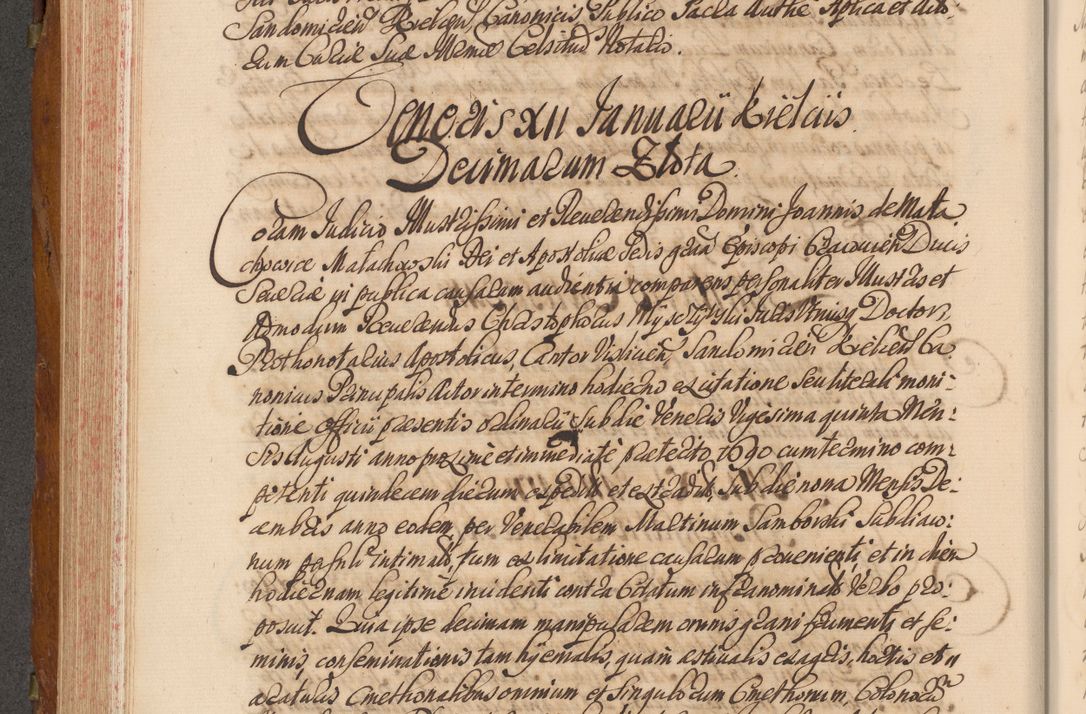 Sandomirien Kielcen, Canonicis, Publico Sacra Authte Aptica et dito-
rum Curiæ Suæ Memoe Celsitud Notario.
Veneris XII Januarii Kielciis.
Decimarum Złota.
Coram Judicio Illustrissimi et Reverendissimi Domini Joannis de Mała
chowice Małachowski Dei et Apostolicæ Sedis gratia Episcopi Cracovien Ducis
Severiæ in publica causarum audientia comparens personaliter Illustris et
Admodum Reverendus Christophorus Juris Utriusq Doctor,
Prothonotarius Apostolicus, Cantor Vislicien, Sandomirien Kielcen Ca
nonicus Principalis Actor in termino hodierno ex citatione seu literali moni-
tione officii præsentis ordinarii sub die Veneris Vigesima quinta Men-
sis Augusti anno proxime et immediate præterito 1690 cum termino com-
petenti quindecem dierum expedit et extradit, sub die nona Mensis De-
cembris anno eodem, per Venerabilem Martinum Samborski Subdiaco-
num intimat, tum ex limitatione causarum provenienti et in diem
hodiernam legitime incidenti contra Citatum infranominat Verbo pro-
posuit. Quia ipse decimam manipularem omnis grani frumenti et se-
minis, conseminationis tam hyemalis, quam æstivalis ex agris, hortis et
araturis Cmethonalibus omnium et singulorum Cmethonum, Colonorum